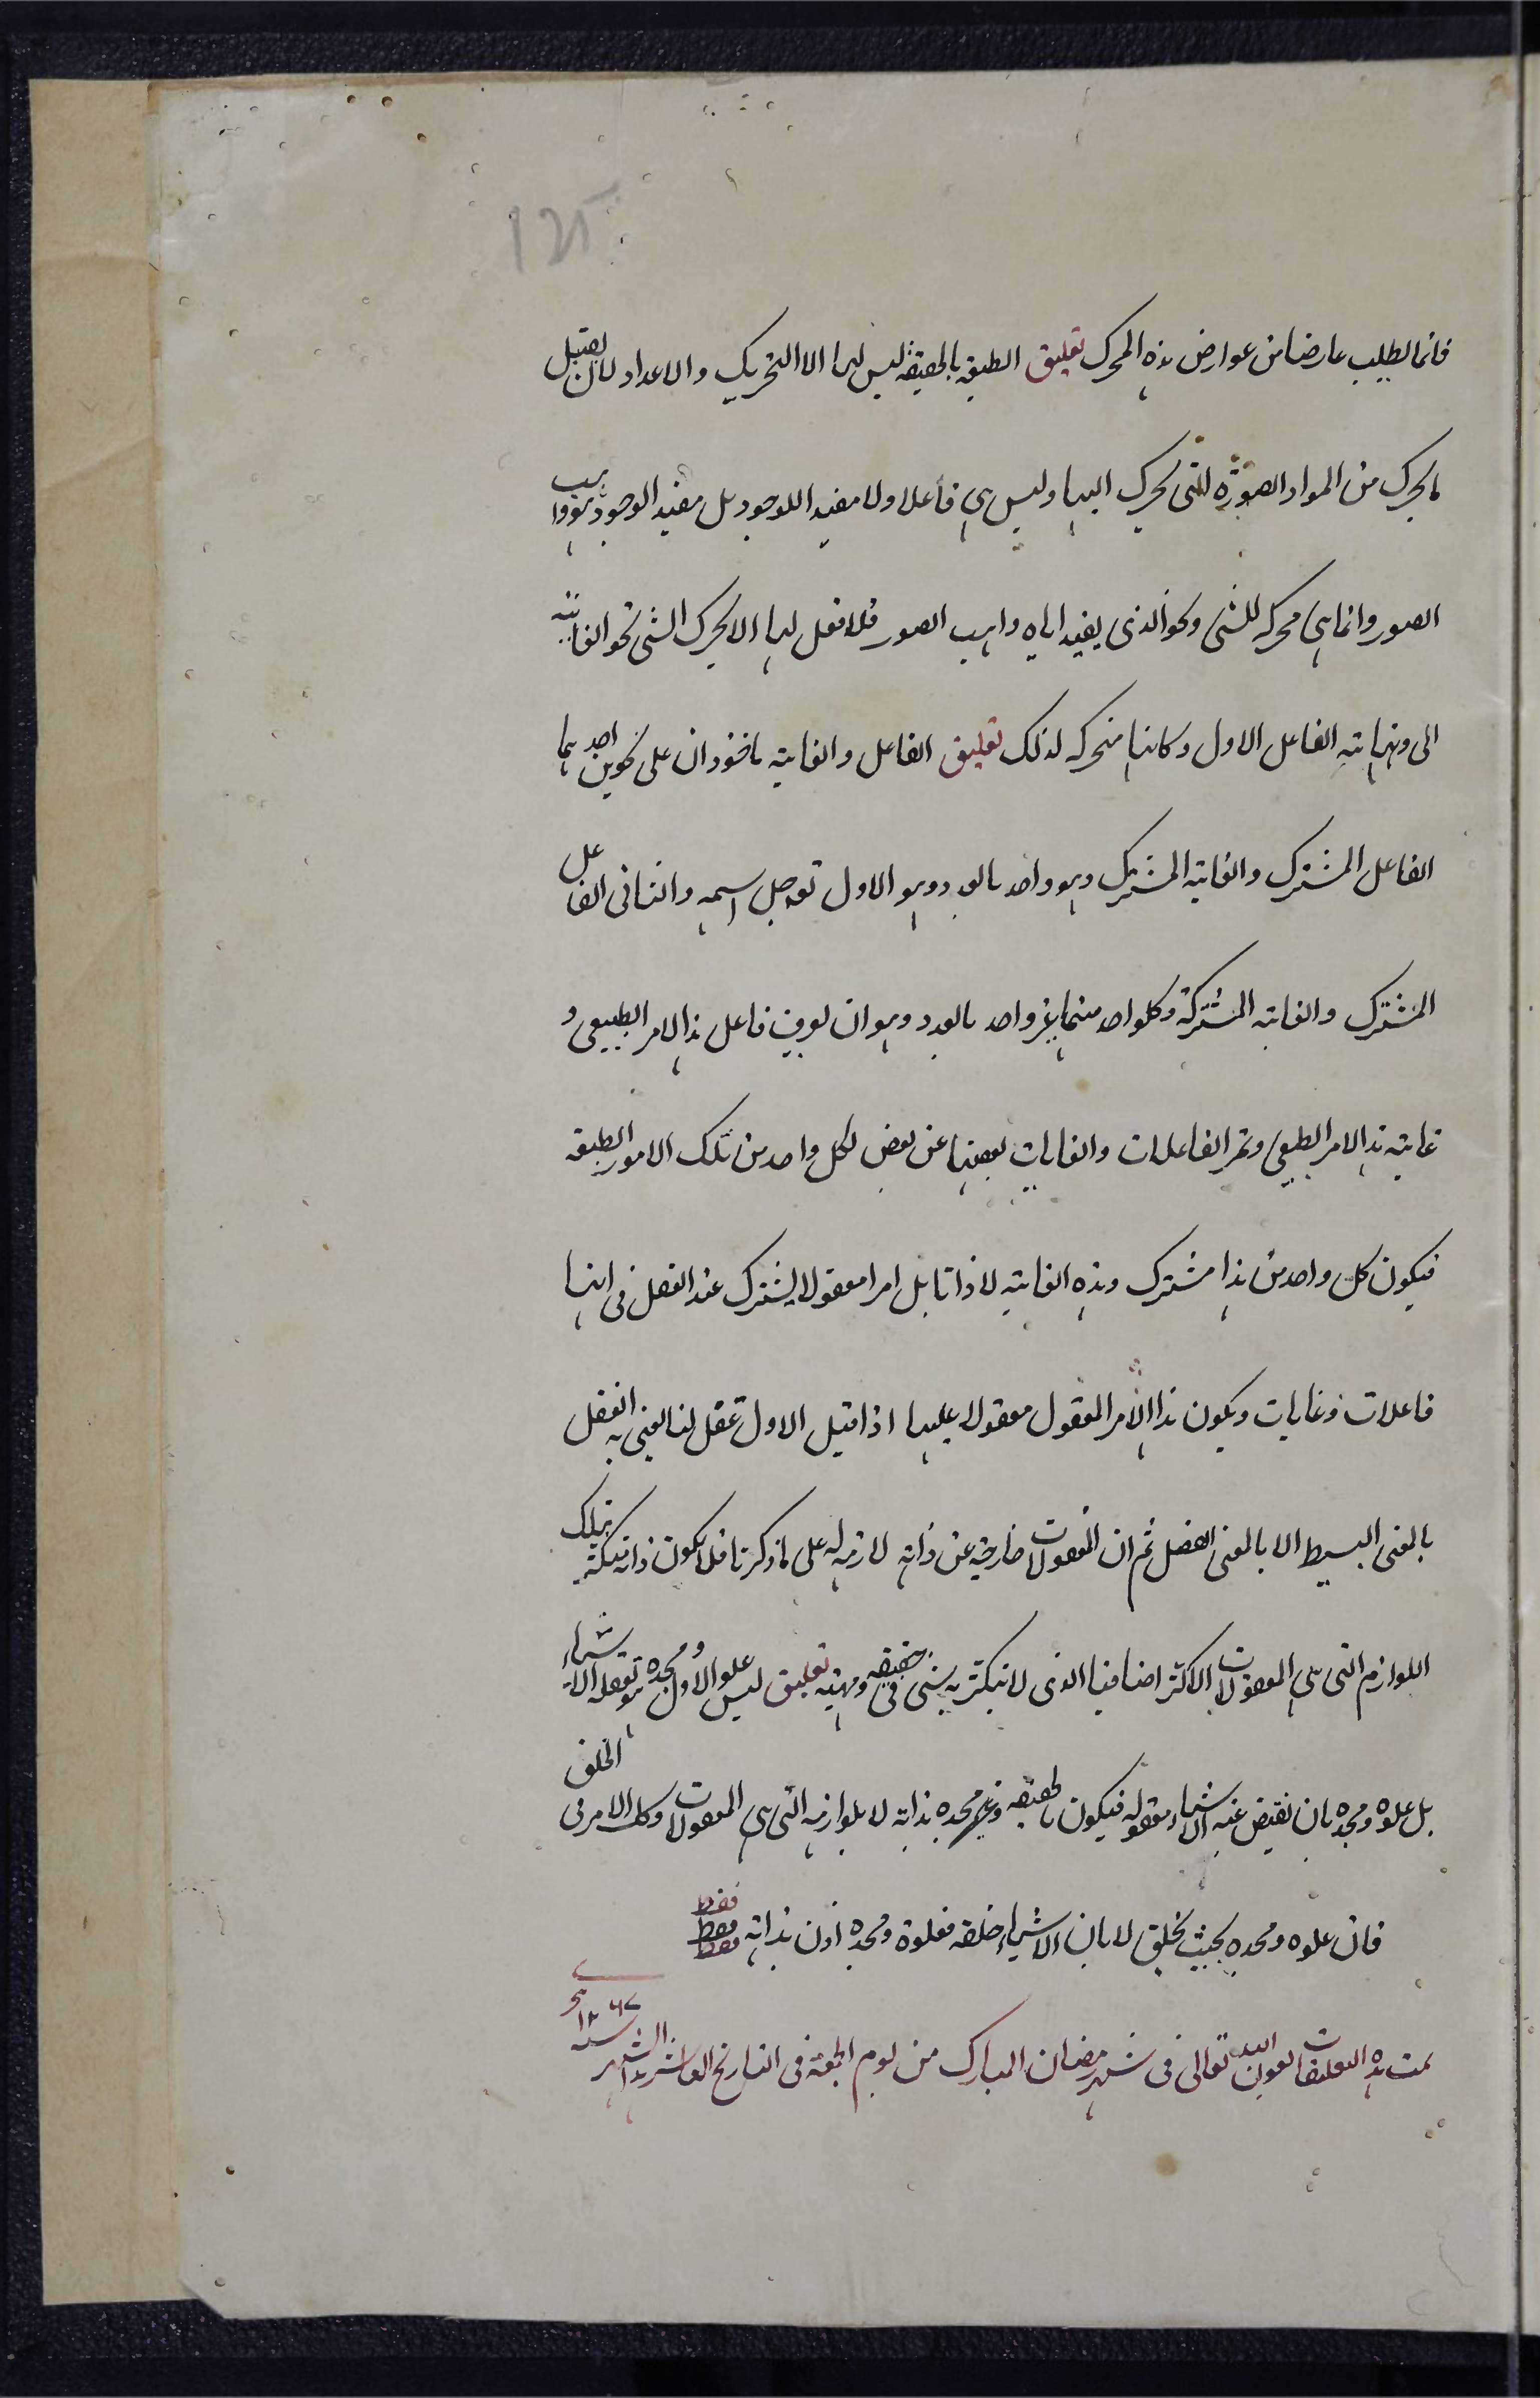 ١٢٥
فانما يطلب عارضا من عوارض هذه المحرك تعليق الطبيعة بالحقيقة ليس لها الا التحريك والاعداد لان يقبل
ما يحرك من المواد الصورة التى يحرك اليها وليس هى فاعلا ولا مفيدا للوجود بل مفيد الوجود هو واهب
الصور وانما هى محركه للشى ونحو الذى يفيد اياه واهب الصور فلا فعل لها الا يحرك الشى نحو الغاية
الى ونهايته الفاعل الاول وكانها متحركه لذلك تعليق الفاعل والغاية ماخوذان على نحوين احدهما
الفاعل المشترك والغاية المشترك وهو واحد بالعدد وهو الاول تعه جل اسمه والثانى الفاعل
المشترك والغايه المشتركة وكلواحد منهما غير واحد بالعدد وهو ان يعرف فاعل هذا الامر الطبيعى و
غاية هذا الامر الطبيعى وتمر الفاعلات والغايات بعضها عن بعض لكل واحد من تلك الامور الطبيعة
فيكون كل واحد من هذا مشترك وهذه الغاية لا ذاتا بل امرا معقولا يشترك عند العقل فى انها
فاعلات وغايات ويكون هذا الامر المعقول معقولا عليها اذا قيل الاول تعقل لنا يعنى به العقل
بالمعنى البسيط الا بالمعنى المفصل ثم ان المعقولات خارجية عن ذاته لازمه له على ما ذكرنا فلا يكون ذاته متكثرة بتلك
اللوازم التى هى المعقولات الا تكثر اضافيا الذى لا يتكثر به شى فى حقيقه ومهيته تعليق ليس علو الاول ومجده هو تعقله الاشياء
بل علوه ومجده بان يفيض عنه الاشياء معقوله فيكون بالحقيقه وغير مجده بذاته لا بلوازمه التى هى المعقولات وكك الامر فى الخلق
فان علوه ومجده بحيث يخلق لا بان الاشياء خلقه فعلوه ومجده اذن بذاته فقط فقط فقط
تمت هذه التعليقات بعون الله تعالى فى شهر رمضان المبارك من يوم الجمعة فى التاريخ العاشر هذا الشهر